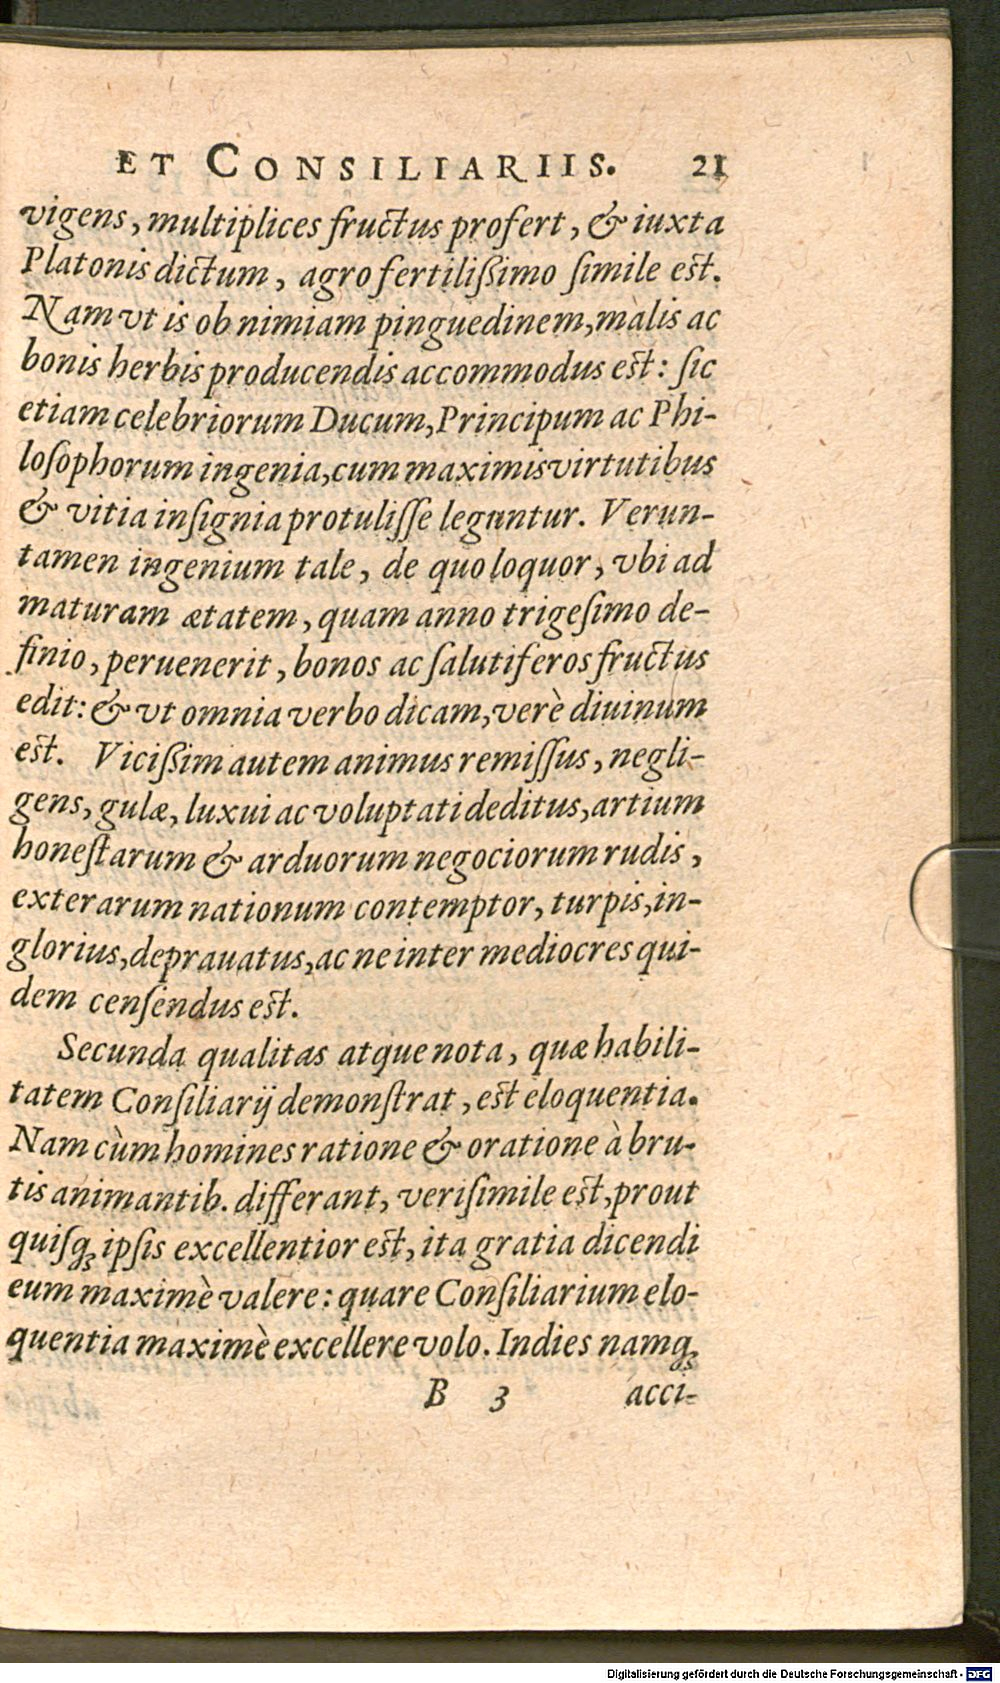 ET CONSILIARIIS. 21
vigens, multiplices fructus profert, & iuxta
Platonis dictum, agro fertilißimo ſimile est.
Nam vt is ob nimiam pinguedinem, malis ac
bonis herbis producendis accommodus est: ſic
etiam celebriorum Ducum, Principum ac Phi-
loſophorum ingenia, cum maximis virtutibus
& vitia inſignia protuliſſe leguntur. Verun-
tamen ingenium tale, de quo loquor, vbi ad
maturam ætatem, quam anno trigeſimo de-
finio, peruenerit, bonos ac ſalutiferos fructus
edit: & vt omnia verbo dicam, verè diuinum
est. Vicißim autem animus remiſſus, negli-
gens, gulæ, luxui ac voluptati deditus, artium
honeſtarum & arduorum negociorum rudis,
exterarum nationum contemptor, turpis, in-
glorius, deprauatus, ac ne inter mediocres qui-
dem cenſendus est.
Secunda qualitas atque nota, quæ habili-
tatem Conſiliarij demonſtrat, est eloquentia.
Nam cùm homines ratione & oratione à bru-
tis animantib. differant, veriſimile est, prout
quiſq; ipſis excellentior est, ita gratia dicendi
eum maximè valere: quare Conſiliarium elo-
quentia maximè excellere volo. Indies namq;
B 3 acci-
Digitalisierung gefördert durch die Deutsche Forschungsgemeinschaft - DFG